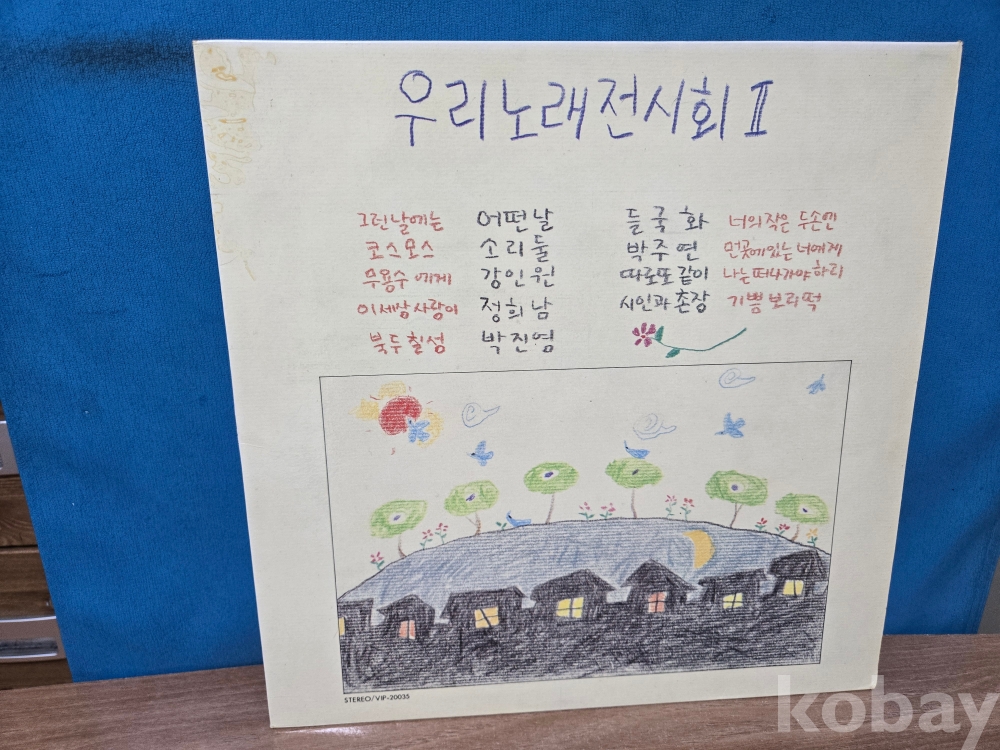 우리노래전시회 II
그런날에는 어떤날
코스모스 소리둘
무용수에게 강인원
이세상사랑이 정희남
북두칠성 박진영
들국화 너의작은 두손엔
박주연 먼곳에있는 너에게
따로또같이 나는 떠나가야 하리
시인과 촌장 기쁨보리떡
STEREO/VIP-20035
kobay